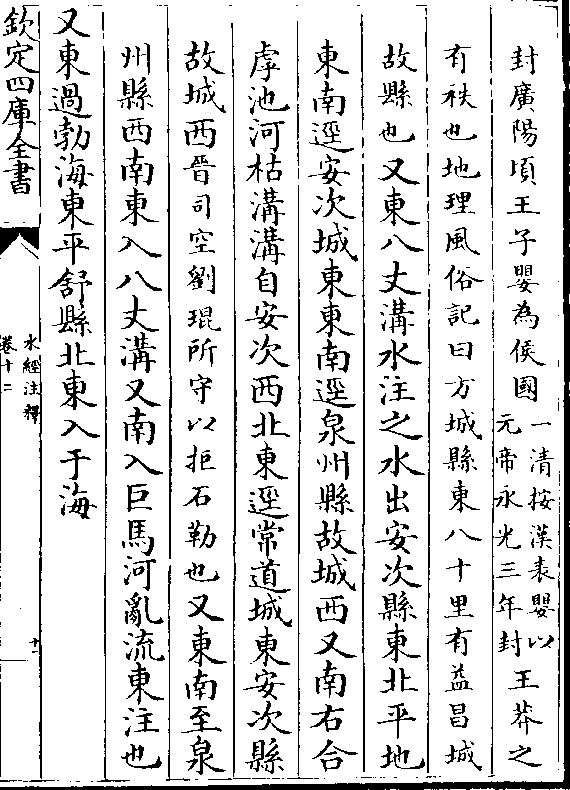 封廣陽頃王子嬰為侯國一清按漢表嬰以元帝永光三年封王莽之
有秩也地理風俗記曰方城縣東八十里有益昌城
故縣也又東八丈溝水注之水出安次縣東北平地
東南逕安次城東東南逕泉州縣故城西又南右合
虖池河枯溝溝自安次西北東逕常道城東安次縣
故城西晉司空劉琨所守以拒石勒也又東南至泉
州縣西南東入八丈溝又南入巨馬河亂流東注也
又東過勃海東平舒縣北東入于海
欽定四庫全書
水經注釋
卷十二
十一